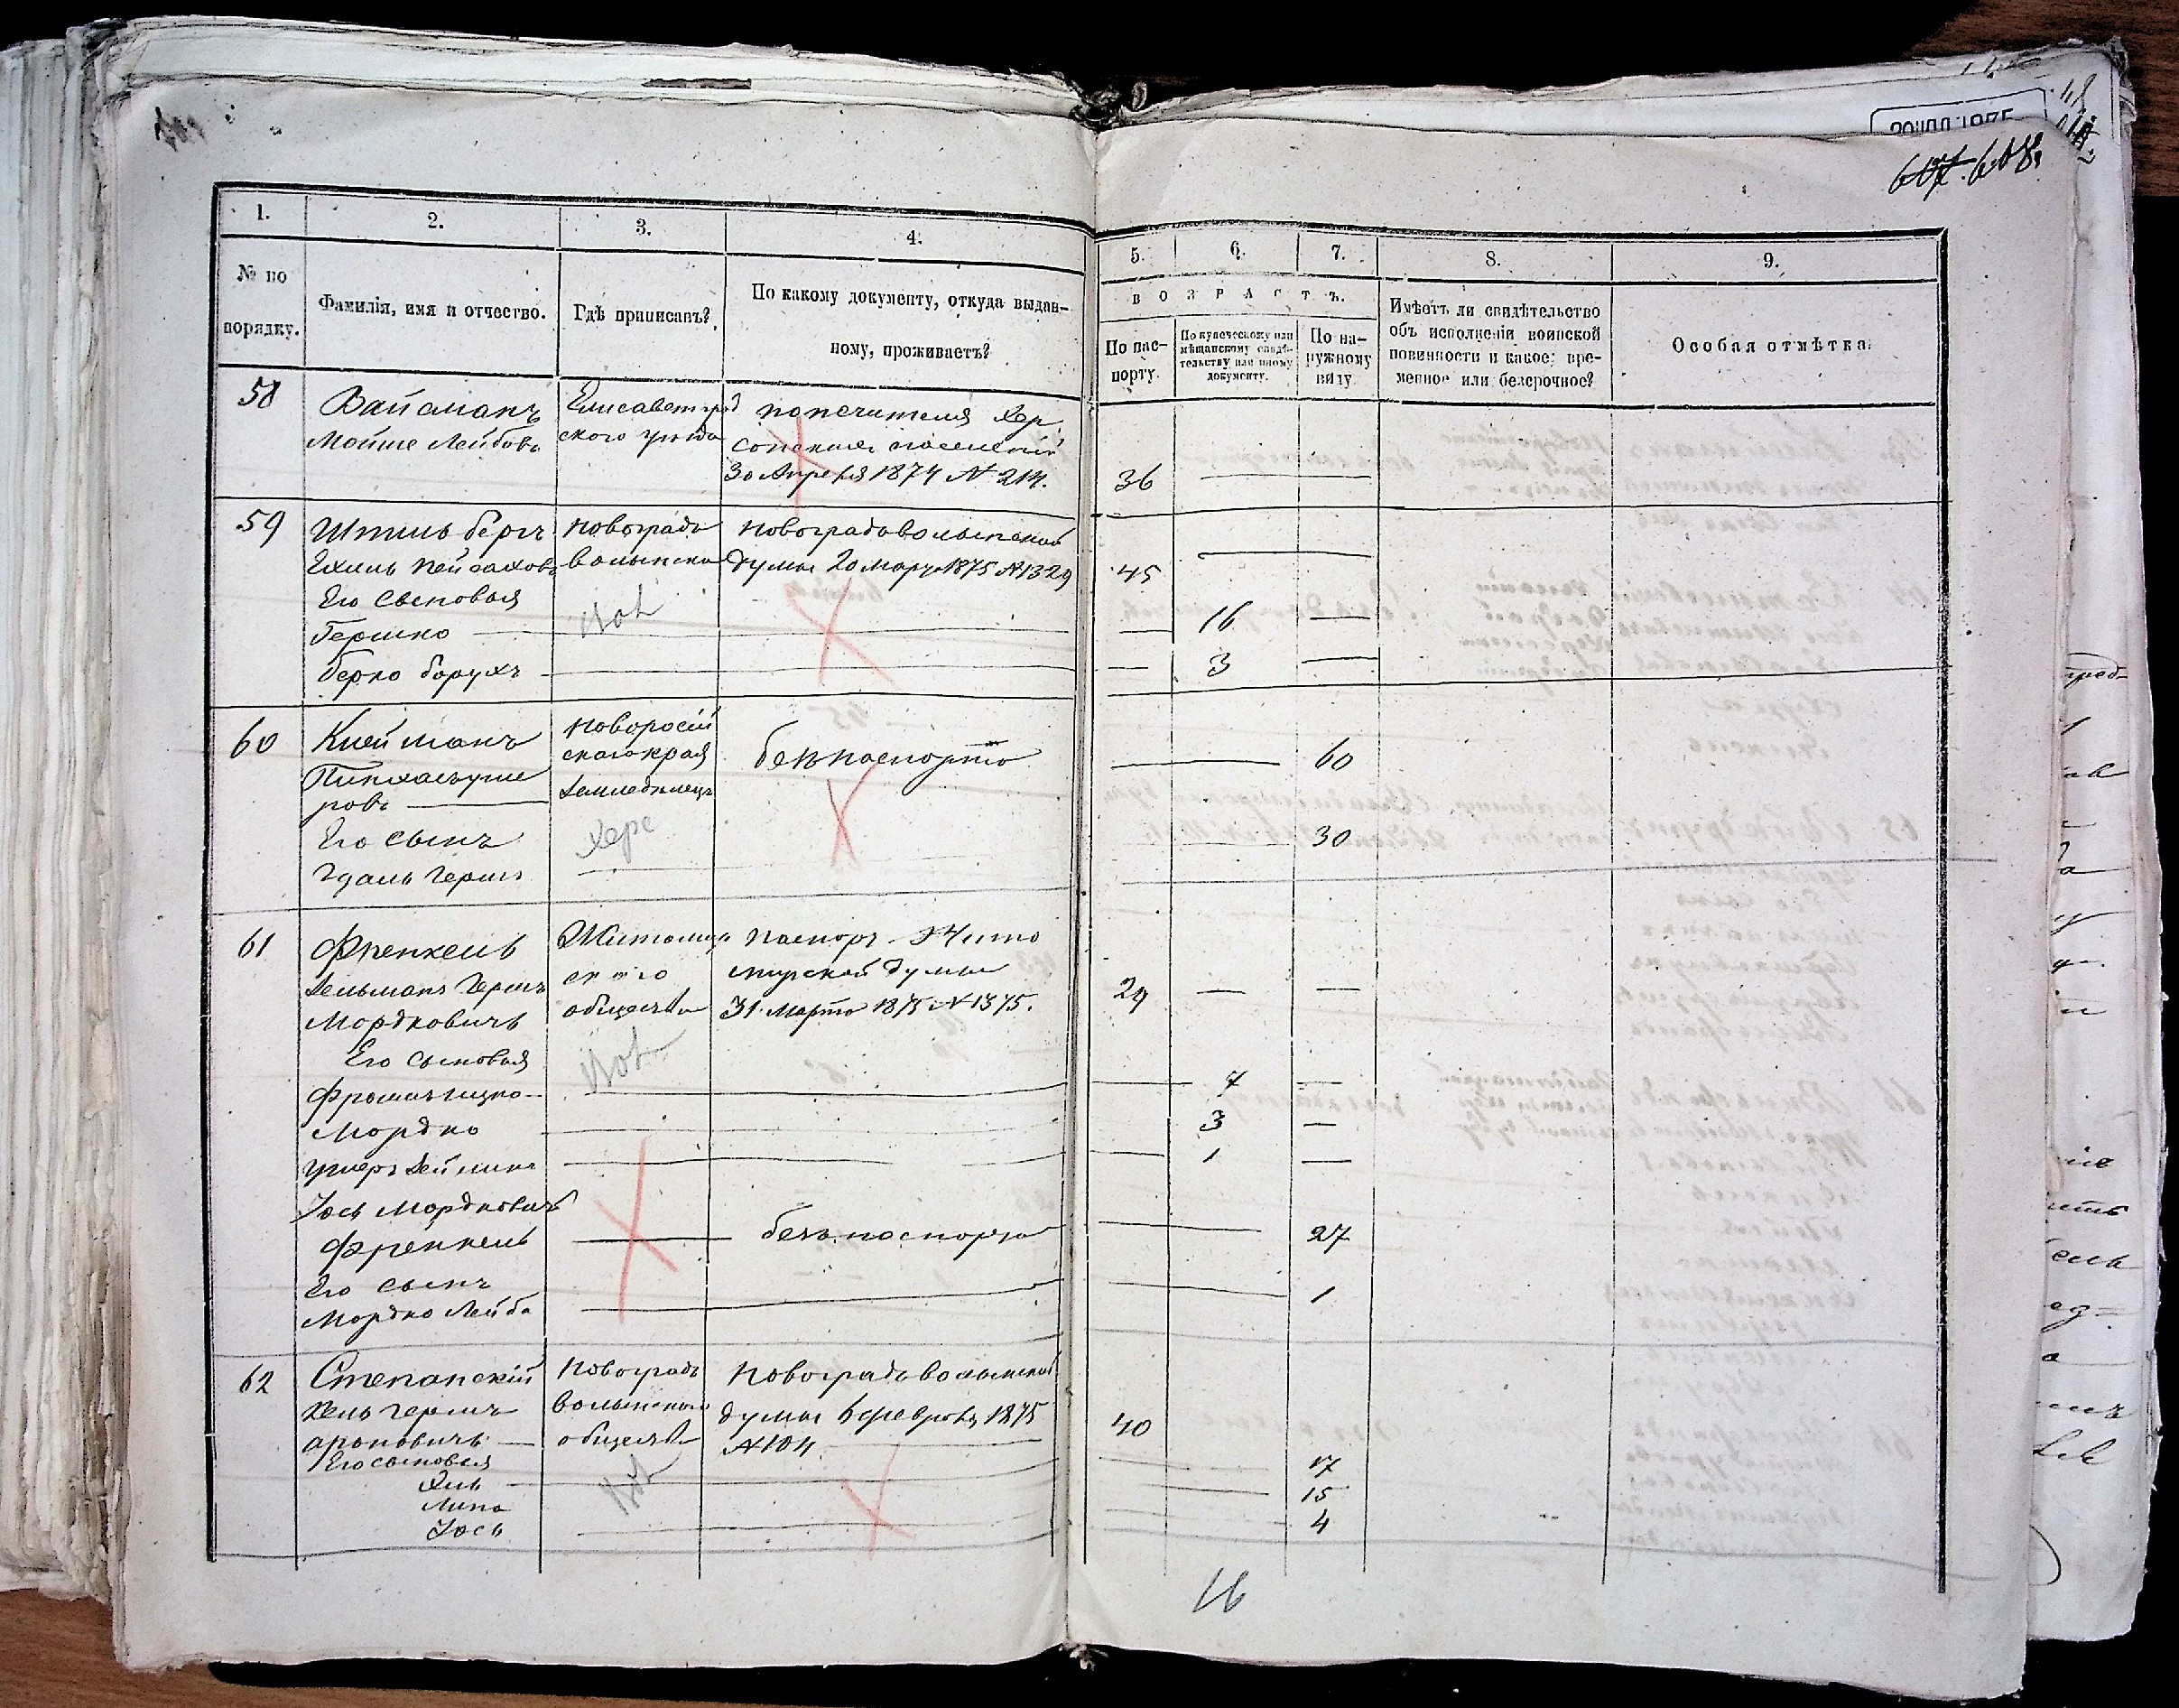 607. 608.
1.
2.
3.
4.
5.
6.
7.
8.
9.
№ по
порядку.
Фамилія, имя и отчество.
Гдѣ приписанъ?
По какому документу, откуда выдан-
ному, проживаетъ?
ВОЗРАСТЪ.
По пас-
порту.
По купеческому или
мѣщанскому свидѣ-
тельству или иному
документу.
По на-
ружному
виду
Имѣетъ ли свидѣтельство
объ исполненіи воинской
повинности и какое: вре-
менное или безсрочное?
Особая отмѣтка.
58
Вайсманъ
Мойше Лейбовъ
Елисаветград
ского уѣзда
попечителя Хер
сонскихъ поселеній
30 Апреля 1874 № 214.
36
59
Штильбергъ
Ехиль Пейсаховъ
Его сыновья
Гершко
Берко Борухъ
Новоградъ
волынска
Новоградъволынской
думы 20 марта 1875 № 1329
45
16
3
60
Клейманъ
Пинхасъуше
ровъ
Его сынъ
Гдаль Герш
Новоросій
скаго края
земледѣлецъ
Херс
безъ паспорта
60
30
61
Френкель
Зельманъ Гершъ
Мордковичъ
Его сыновья
Фроимъ Ицко
Мордко
Ушеръ Зейликъ
Іось Мордковичъ
Френкель
Его сынъ
Мордко Лейба
Житомир
ского
общества
паспортъ Жито
мирской думы
31 марта 1875 № 1375.
безъ паспорта
29
7
3
1
27
1
62
Степанскій
Хель Гершъ
Ароновичъ
Его сыновья
Хиль
Липа
Іось
Новоградъ
волынскаго
общества
Новоградъволынской
думы 6 февраля 1875
№ 104
40
17
15
4
16